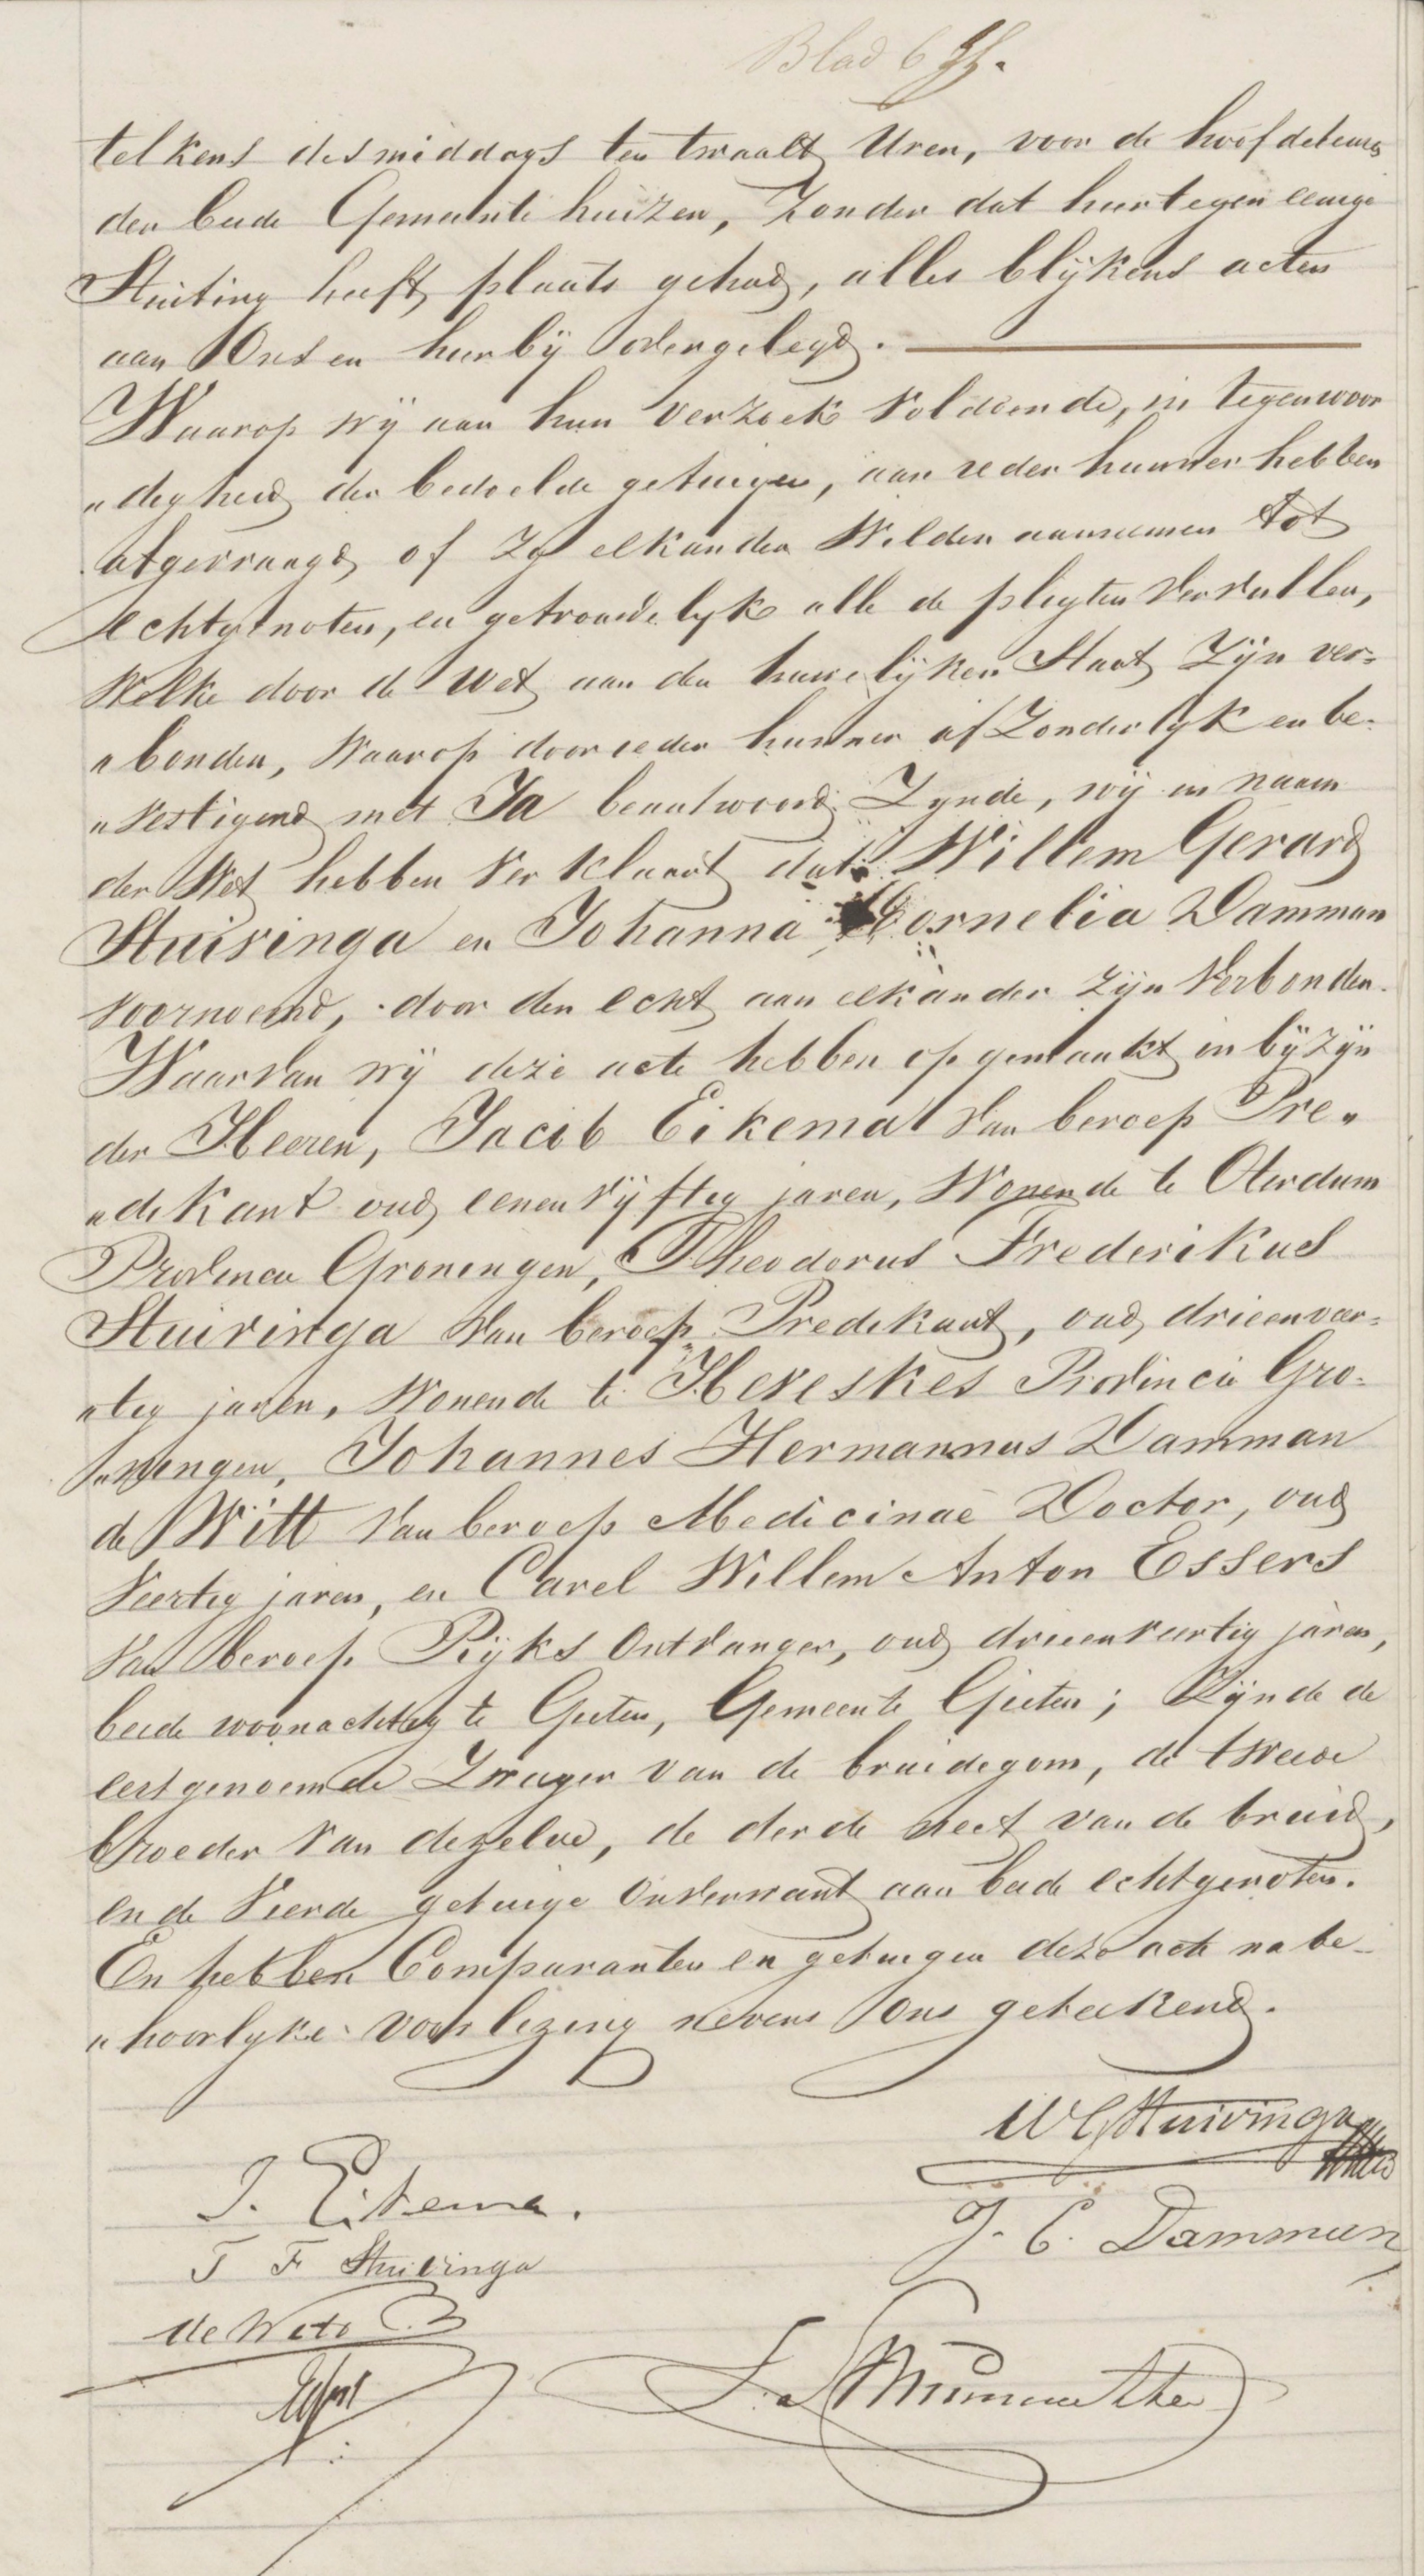 Blad 6
telkens des middags ten twaalf Uren, voor de hoofddeuren
der beide Gemeente huizen, Zonder dat hier tegen eenige
Stuiting heeft plaats gehad, alles blijkens acten
aan Ons en hierbij overgelegd.
Waarop wij aan hun verzoek voldoende, in tegenwoor
"digheid der bedoelde getuigen, aan ieder hunner hebben
afgevraagd of Zy elkander Wilden aannemen tot
echtgenoten, en getrouwelyk alle de pligten vervullen,
Welke door de Wet aan den huwelijken Staat Zijn ver=
"bonden, Waarop door ieder hunner afzonderlyk en be-
"vestigend met Ja beantwoord Zynde, wij in naam
der Wet hebben verklaart dat Willem Gerard
Stuivinga en Johanna Cornelia Damman
voornoemd, door den echt aan elkander zijn verbonden.
Waarvan wij deze acte hebben opgemaakt in bijzijn
der Heeren, Jacob Eikema van beroep Pre"
"dikant oud eenenvijftig jaren, Wonende te Oterdum
Provincie Groningen, Theodorus Frederikus
Stuivinga van beroep Predikant, oud drieenveer=
"tig jaren, Wonende te Heveskes Provincie Gro-
"ningen, Johannes Hermannus Damman
de Witt van beroep Medicinae Doctor, oud
Veertig jaren, en Carel Willem Anton Essers
van beroep Rijks Ontvanger, oud drieenveertig jaren,
beide woonachtig te Gieten, Gemeente Gieten; Zijnde de
eerstgenoemde Zwager van de bruidegom, de tweede
broeder van dezelve, de derde neef van de bruid,
en de Vierde getuige Onverwant aan beide echtgenoten.
En hebben Comparanten en getuigen deze acte na be-
"hoorlyke voorlezing nevens Ons geteekend.
W G Stuivinga
J. Eikema.
J. C. Damman
T F Stuivinga
de Witt
Essers